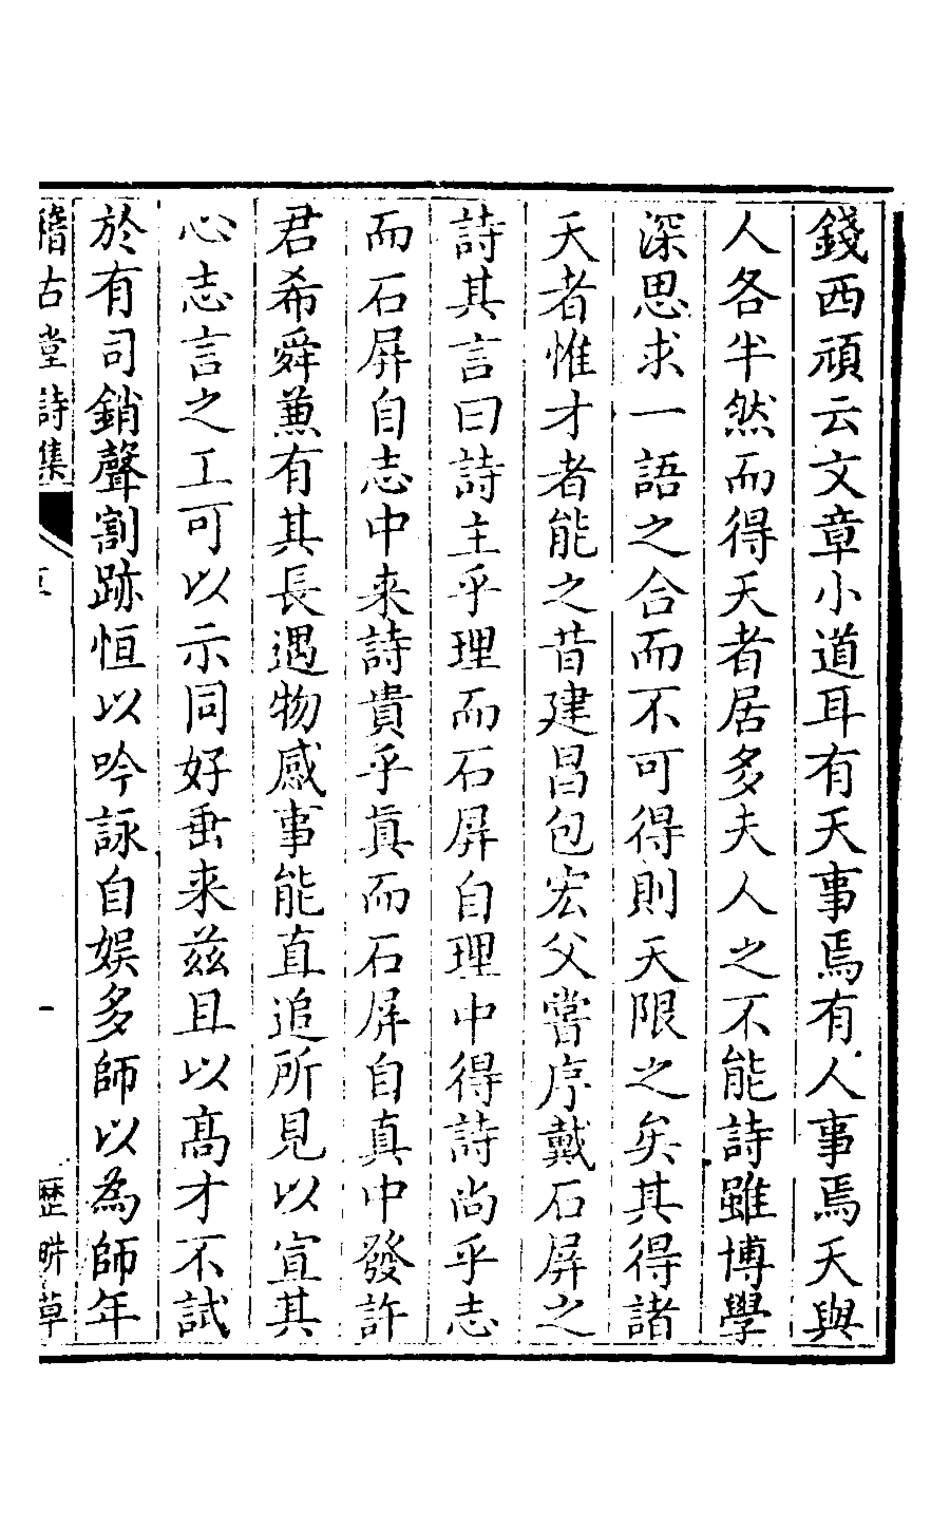 錢西頑云文章小道耳有天事焉有人事焉天與
人各半然而得天者居多夫人之不能詩雖博學
深思求一語之合而不可得則天限之矣其得諸
天者惟才者能之昔建昌包宏父嘗序戴石屏之
詩其言曰詩主乎理而石屏自理中得詩尚乎志
而石屏自志中来詩貴乎真而石屏自真中發許
君希舜蒹有其長遇物感事能直追所見以宣其
心志言之工可以示同好垂来兹且以高才不試
於有司銷聲割跡恒以吟詠自娱多師以為師年
稽古堂詩集
一
歷畊草